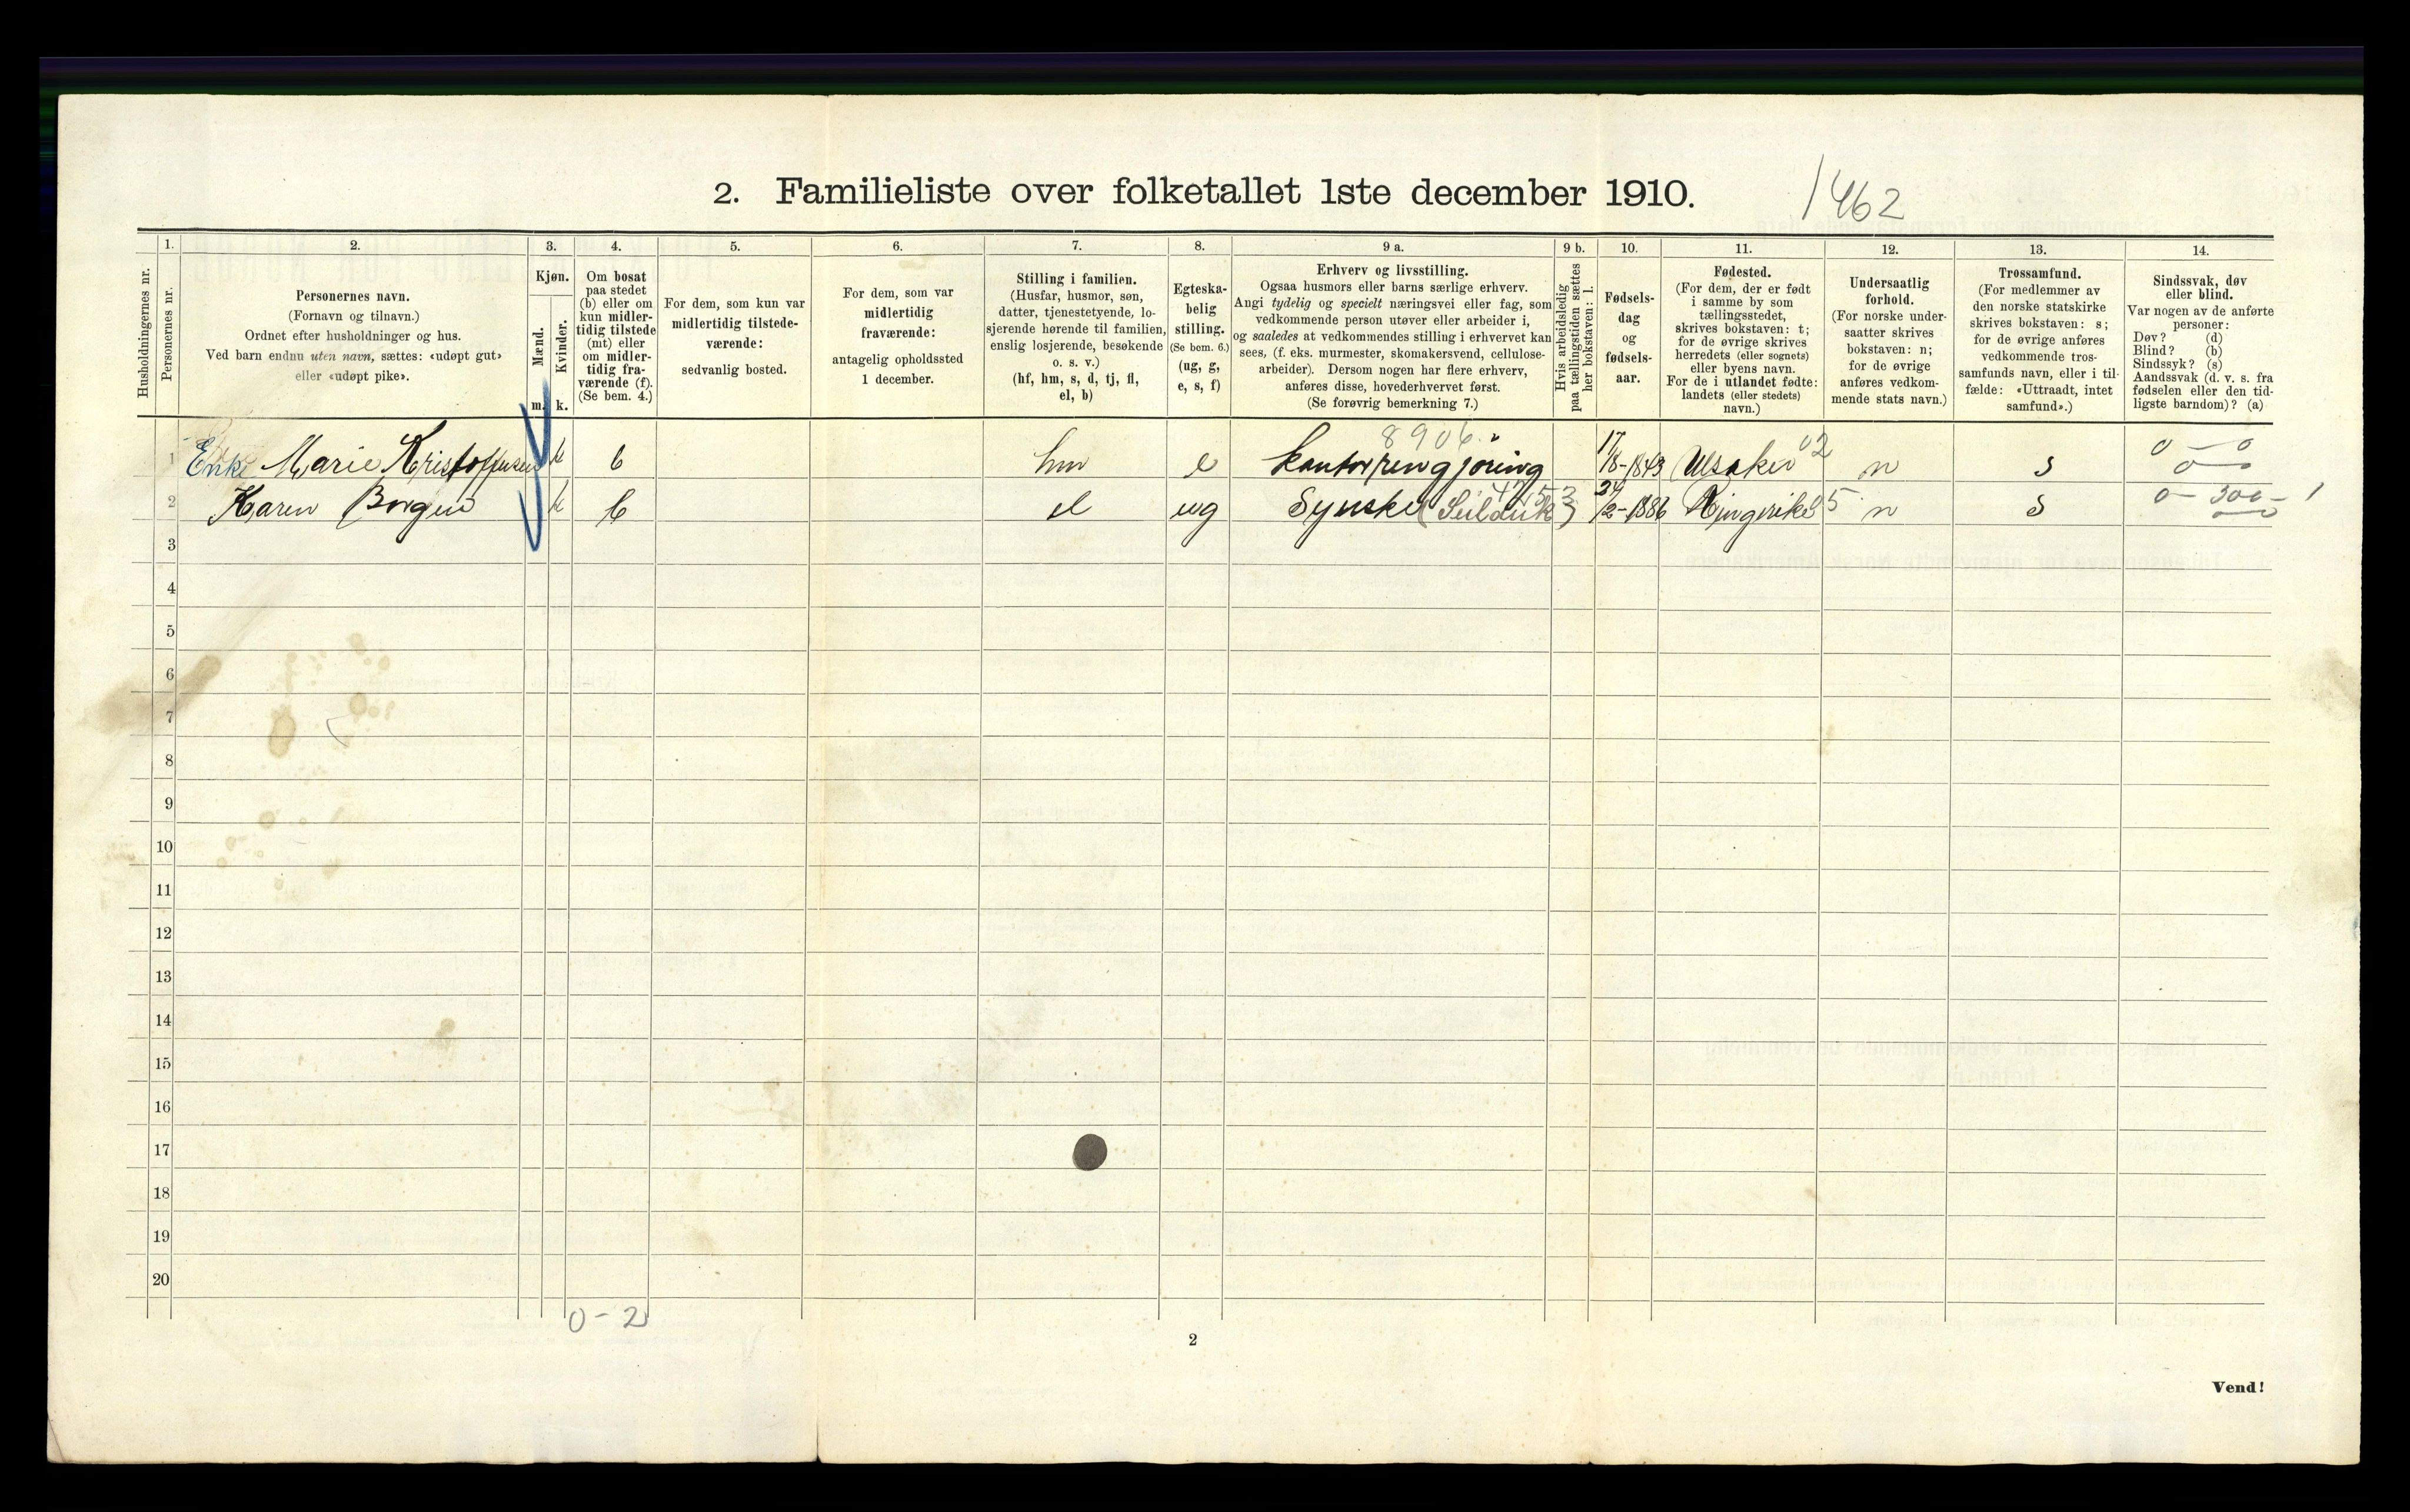 2. Familieliste over folketallet 1ste december 1910.
1462
Husholdningernes nr.
1.
Personernes nr.
2.
Personernes navn.
(Fornavn og tilnavn.)
Ordnet efter husholdninger og hus.
Ved barn endnu uten navn, sættes: «udøpt gut»
eller «udøpt pike».
3.
Kjøn.
Mænd.
Kvinder.
m. k.
4.
Om bosat
paa stedet
(b) eller om
kun midler-
tidig tilstede
(mt) eller
om midler-
tidig fra-
værende (f).
(Se bem. 4.)
5.
For dem, som kun var
midlertidig tilstede-
værende:
sedvanlig bosted.
6.
For dem, som var
midlertidig
fraværende:
antagelig opholdssted
1 december.
7.
Stilling i familien.
(Husfar, husmor, søn,
datter, tjenestetyende, lo-
sjerende hørende til familien,
enslig losjerende, besøkende
o. s. v.)
(hf, hm, s, d, tj, fl,
el, b)
8.
Egteska-
belig
stilling.
(Se bem. 6.)
(ug, g,
e, s, f)
9 a.
Erhverv og livsstilling.
Ogsaa husmors eller barns særlige erhverv.
Angi tydelig og specielt næringsvei eller fag, som
vedkommende person utøver eller arbeider i,
og saaledes at vedkommendes stilling i erhvervet kan
sees, (f. eks. murmester, skomakersvend, cellulose-
arbeider). Dersom nogen har flere erhverv,
anføres disse, hovederhvervet først.
(Se forøvrig bemerkning 7.)
9 b.
Hvis arbeidsledig
paa tællingstiden sættes
her bokstaven: l.
10.
Fødsels-
dag
og
fødsels-
aar.
11.
Fødested.
(For dem, der er født
i samme by som
tællingsstedet,
skrives bokstaven: t;
for de øvrige skrives
herredets (eller sognets)
eller byens navn.
For de i utlandet fødte:
landets (eller stedets)
navn.)
12.
Undersaatlig
forhold.
(For norske under-
saatter skrives
bokstaven: n;
for de øvrige
anføres vedkom-
mende stats navn.)
13.
Trossamfund.
(For medlemmer av
den norske statskirke
skrives bokstaven: s;
for de øvrige anføres
vedkommende tros-
samfunds navn, eller i til-
fælde: «Uttraadt, intet
samfund».)
14.
Sindssvak, døv
eller blind.
Var nogen av de anførte
personer:
Døv? (d)
Blind? (b)
Sindssyk? (s)
Aandssvak (d. v. s. fra
fødselen eller den tid-
ligste barndom)? (a)
8906
1 Enke Marie Kristoffersen k b hm e kontorrengjøring 17/8-1843 Ulsaker 02 n s 0 - 0
2 Karen Borgen k b el ug Syerske (Seilduk) 24/2-1886 Ringerike 5 n s 0 - 300 - 1
3
4
5
6
7
8
9
10
11
12
13
14
15
16
17
18
19
20
0-2
2
Vend!